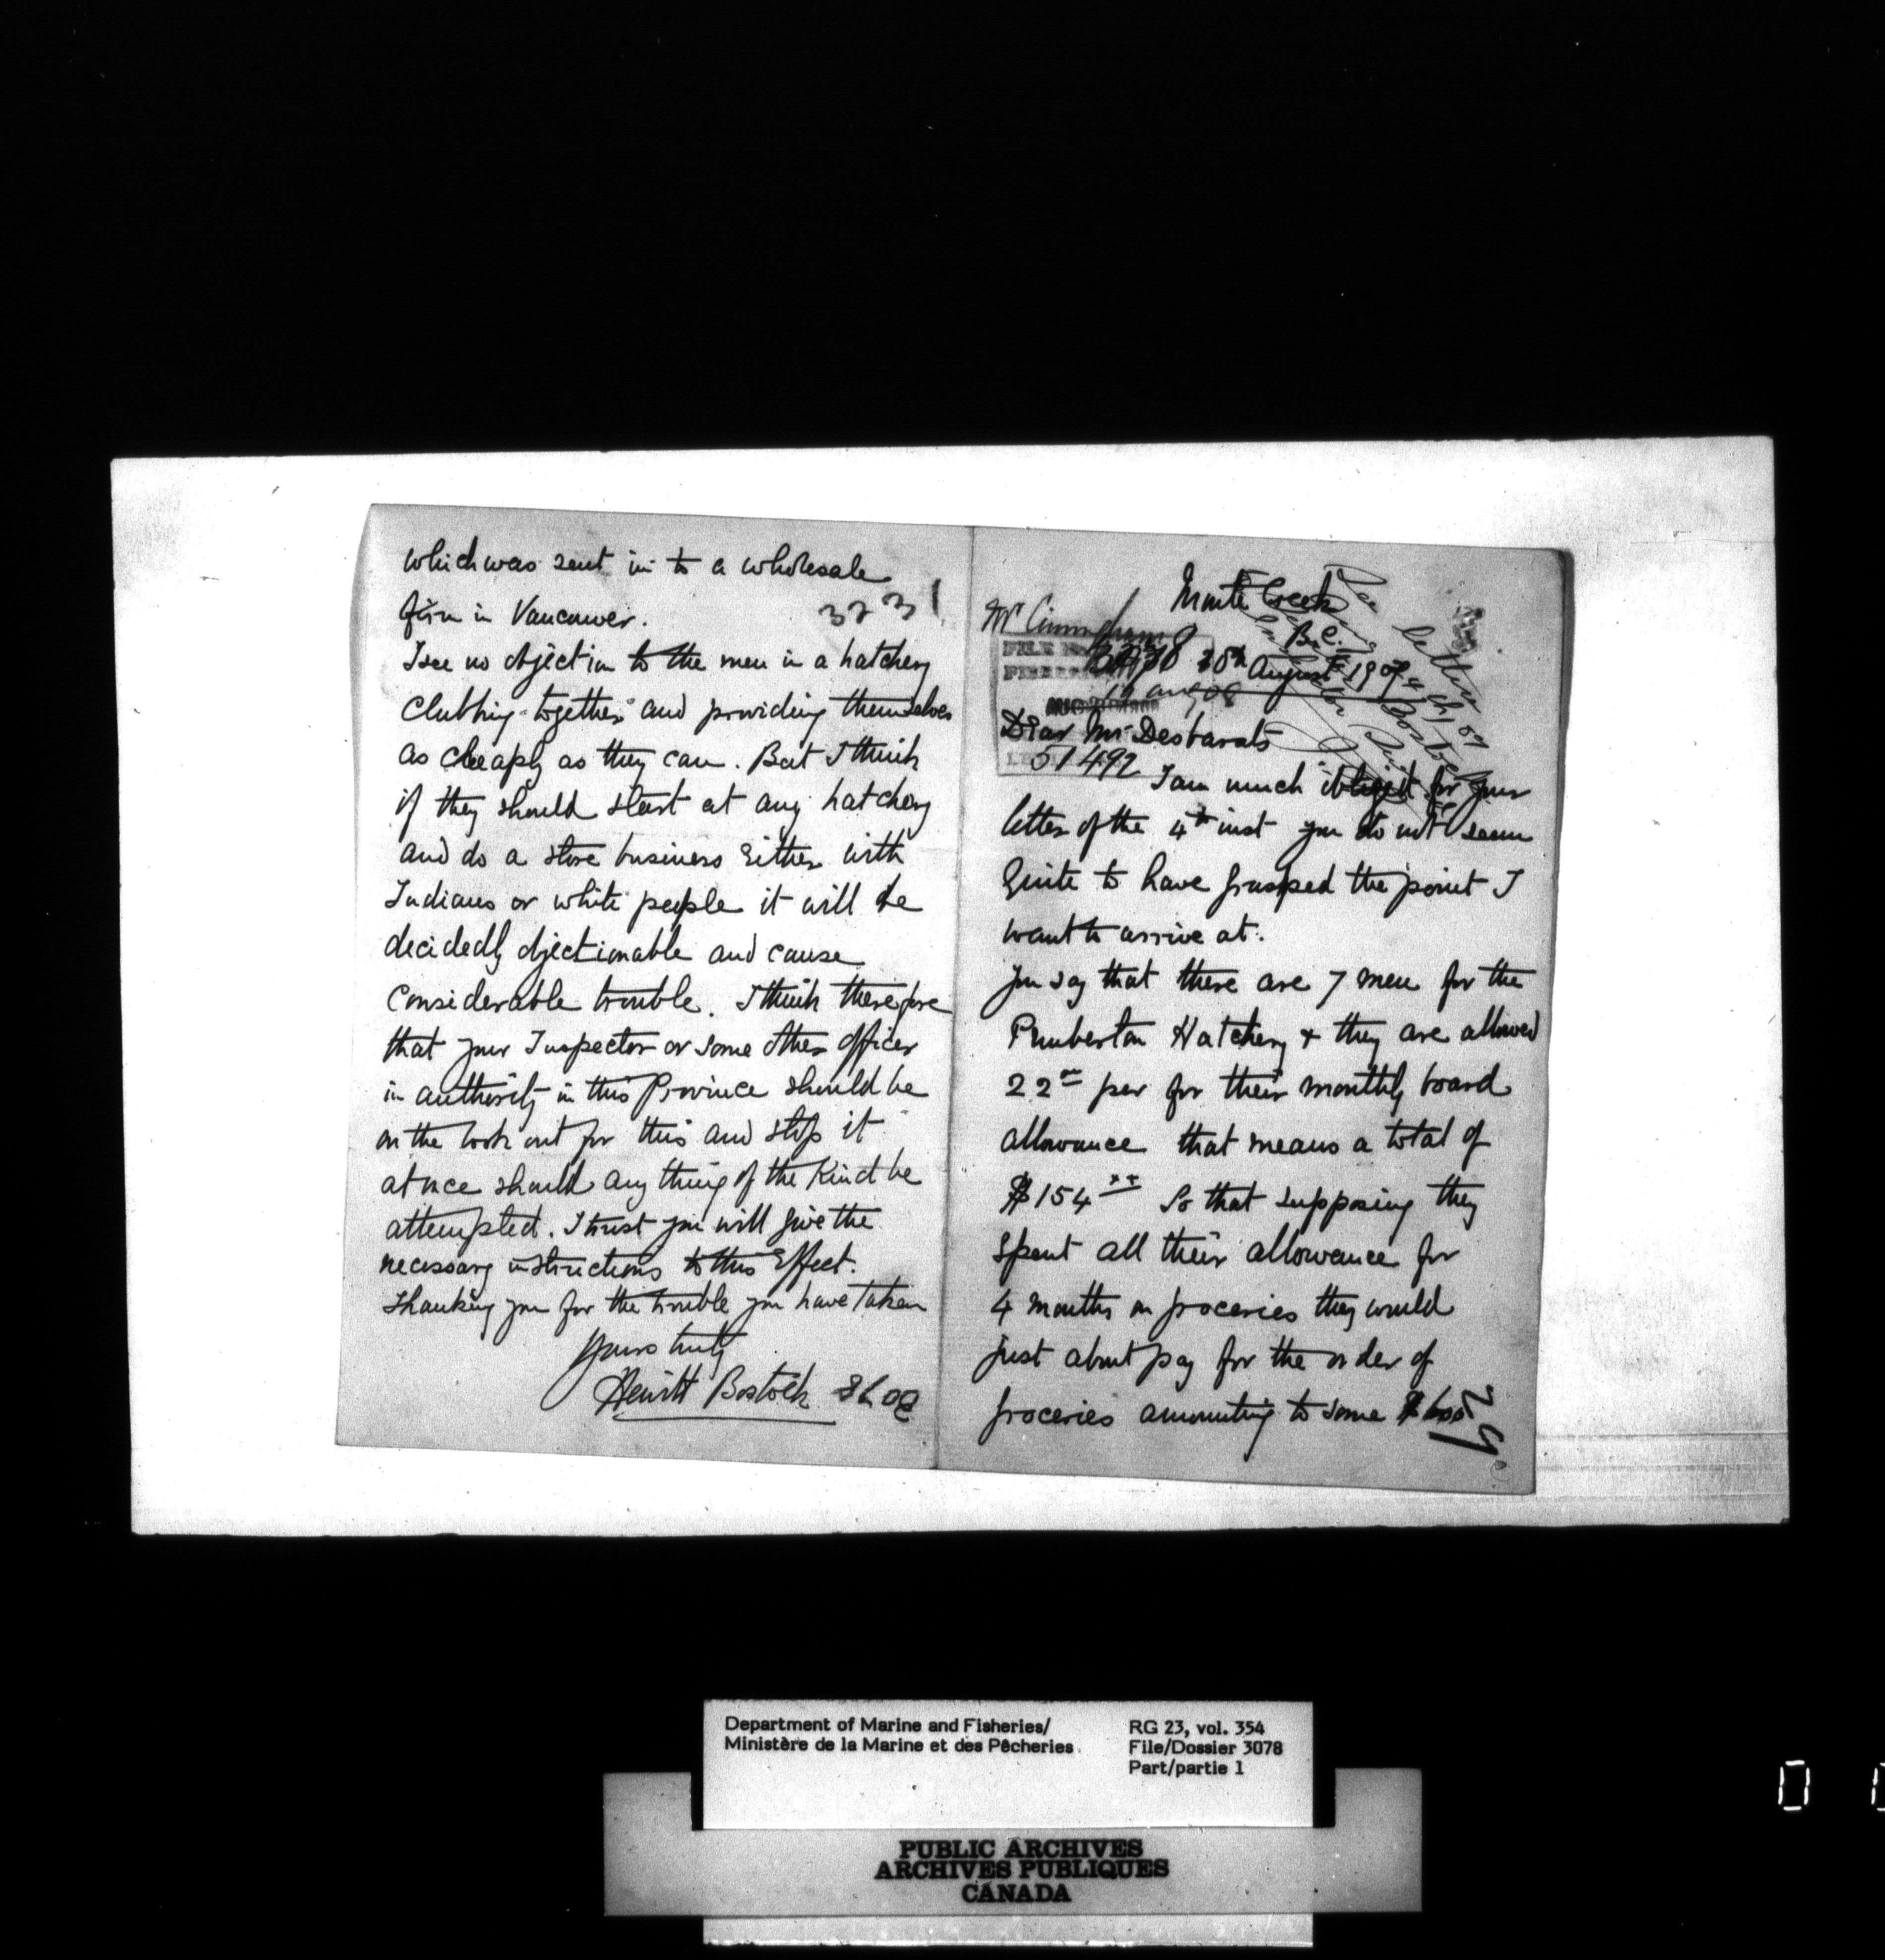 Monte Creek
B.C.
Mr Cunningham
FILE No
3078
August 1908
14 aug 08
Dear Mr Desbarats
51492
I am much obliged for your
letter of the 4th inst you do not seem
quite to have grasped the point I
want to arrive at.
You say that there are 7 men for the
Pemberton Hatchery & they are allowed
22 per for their monthly board
allowance that means a total of
$154 So that supposing they
spent all their allowance for
4 months on groceries they would
just about pay for the order of
groceries amounting to some $600
29
which was sent in to a wholesale
firm in Vancouver.
3231
I see no objection to the men in a hatchery
clubbing together and providing themselves
as cheaply as they can. But I think
if they should start at any hatchery
and do a store business either with
Indians or white people it will be
decidedly objectionable and cause
considerable trouble. I think therefore
that your Inspector or some other officer
in authority in this Province should be
on the look out for this and stop it
at once should any thing of the kind be
attempted. I trust you will give the
necessary instructions to this effect.
Thanking you for the trouble you have taken
Yours truly
Hewitt Bostock
Department of Marine and Fisheries/
Ministère de la Marine et des Pêcheries
RG 23, vol. 354
File/Dossier 3078
Part/partie 1
PUBLIC ARCHIVES
ARCHIVES PUBLIQUES
CANADA